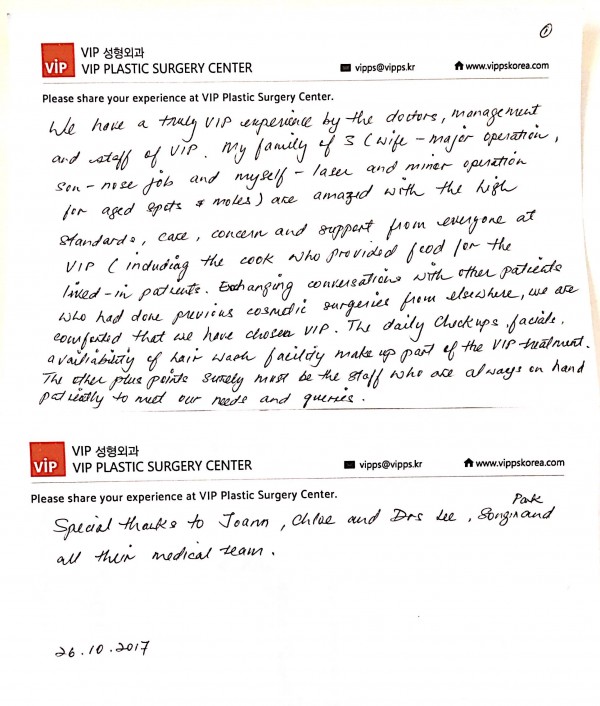 ①
VIP 성형외과
VIP PLASTIC SURGERY CENTER
vipps@vipps.kr
www.vippskorea.com
Please share your experience at VIP Plastic Surgery Center.
We have a truly VIP experience by the doctors, management
and staff of VIP. My family of 3 (wife - major operation,
son - nose job and myself - laser and minor operation
for aged spots & moles) are amazed with the high
standards, care, concern and support from everyone at
VIP (including the cook who provided food for the
lived-in patients. Exchanging conversations with other patients
who had done previous cosmetic surgeries from elsewhere, we are
comforted that we have chosen VIP. The daily checkups, facials,
availiability of hair wash facility make up part of the VIP treatment.
The other plus points surely must be the staff who are always on hand
patiently to meet our needs and queries.
ViP
VIP 성형외과
VIP PLASTIC SURGERY CENTER
vipps@vipps.kr
www.vippskorea.com
Please share your experience at VIP Plastic Surgery Center.
Special thanks to Joann, Chloe and Drs Lee, Park and
all their medical team.
26.10.2017